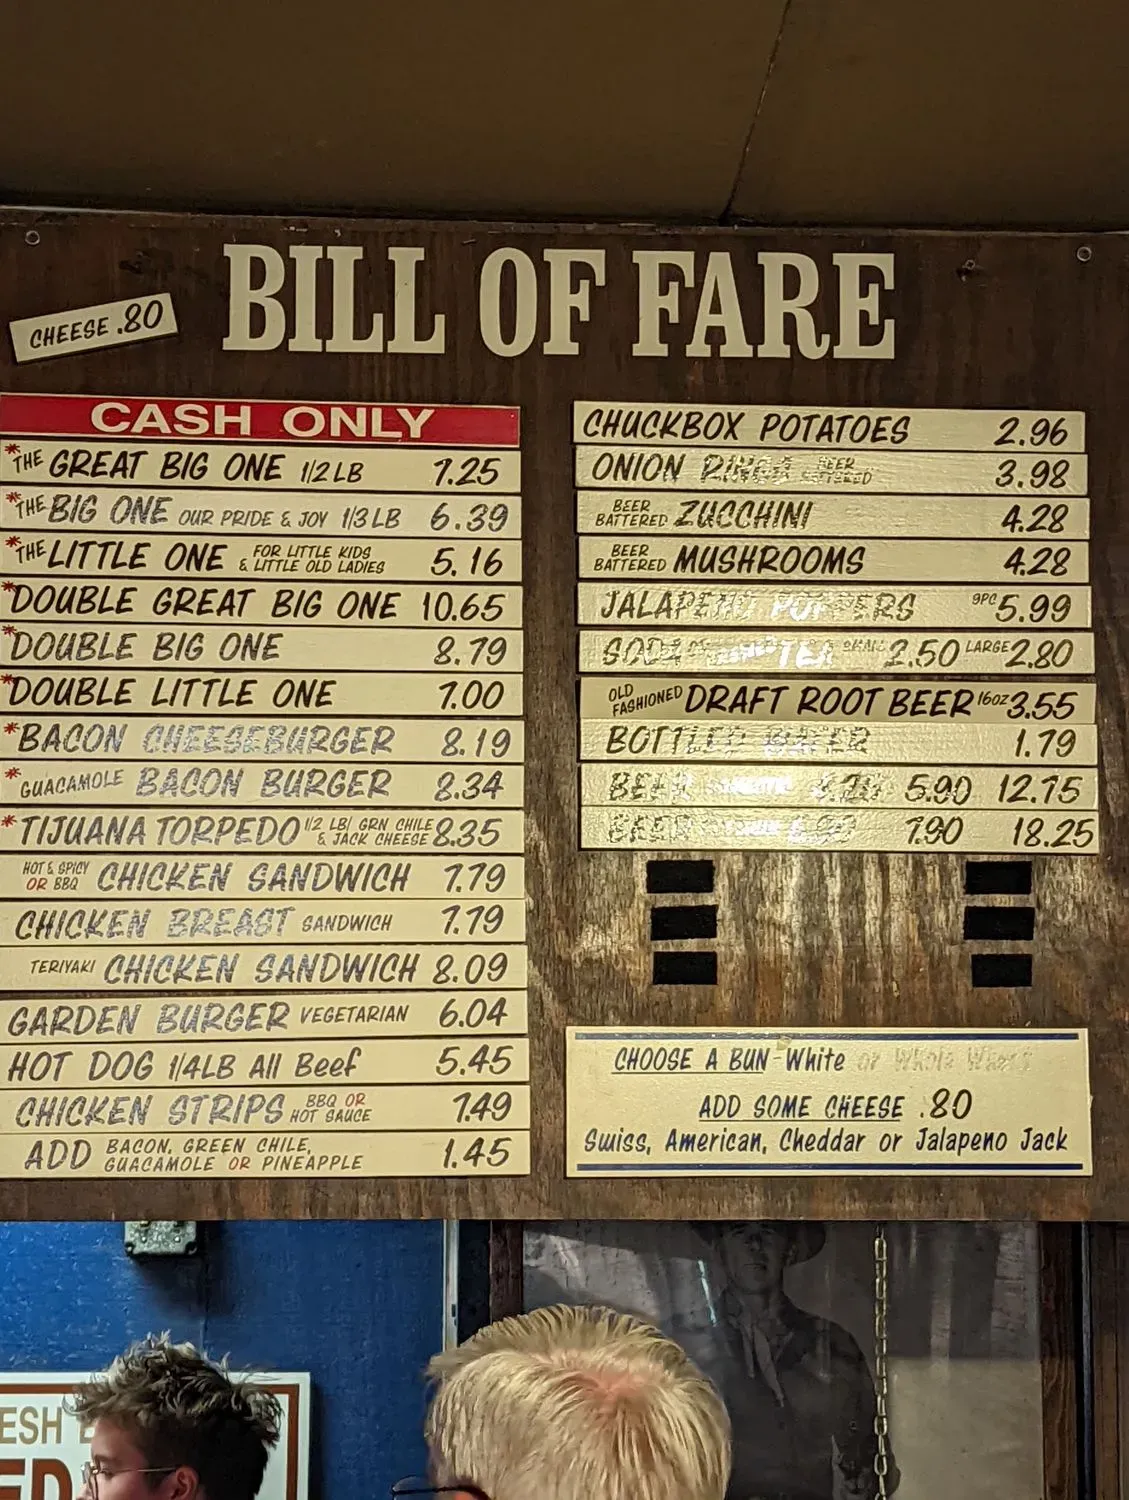 CHEESE .80
BILL OF FARE
CASH ONLY
*THE GREAT BIG ONE 1/2 LB 7.25
*THE BIG ONE OUR PRIDE & JOY 1/3 LB 6.39
*THE LITTLE ONE FOR LITTLE KIDS & LITTLE OLD LADIES 5.16
*DOUBLE GREAT BIG ONE 10.65
*DOUBLE BIG ONE 8.79
*DOUBLE LITTLE ONE 7.00
*BACON CHEESEBURGER 8.19
*GUACAMOLE BACON BURGER 8.34
*TIJUANA TORPEDO 1/2 LB/ GRN CHILE & JACK CHEESE 8.35
HOT & SPICY OR BBQ CHICKEN SANDWICH 7.79
CHICKEN BREAST SANDWICH 7.79
TERIYAKI CHICKEN SANDWICH 8.09
GARDEN BURGER VEGETARIAN 6.04
HOT DOG 1/4LB All Beef 5.45
CHICKEN STRIPS BBQ OR HOT SAUCE 7.49
ADD BACON, GREEN CHILE, GUACAMOLE OR PINEAPPLE 1.45
CHUCKBOX POTATOES 2.96
ONION RINGS BEER BATTERED 3.98
BEER BATTERED ZUCCHINI 4.28
BEER BATTERED MUSHROOMS 4.28
JALAPENO POPPERS 9PC 5.99
SODA TEA SMALL 2.50 LARGE 2.80
OLD FASHIONED DRAFT ROOT BEER 16oz 3.55
BOTTLED WATER 1.79
BEER 5.90 12.75
BEER 7.90 18.25
CHOOSE A BUN - White or Whole Wheat
ADD SOME CHEESE .80
Swiss, American, Cheddar or Jalapeno Jack
ESH
ED